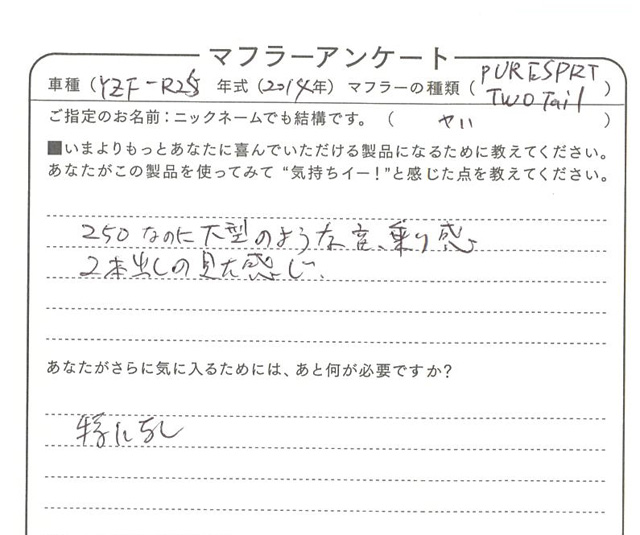 マフラーアンケート
車種（YZF-R25）年式（2014年）マフラーの種類（PURESPRT TWO Tail）
ご指定のお名前：ニックネームでも結構です。（　　）
■いまよりもっとあなたに喜んでいただける製品になるために教えてください。
あなたがこの製品を使ってみて“気持ちイー！”と感じた点を教えてください。
250なのに大型のような音、乗り感
2本出しの見た感じ、
あなたがさらに気に入るためには、あと何が必要ですか？
特になし